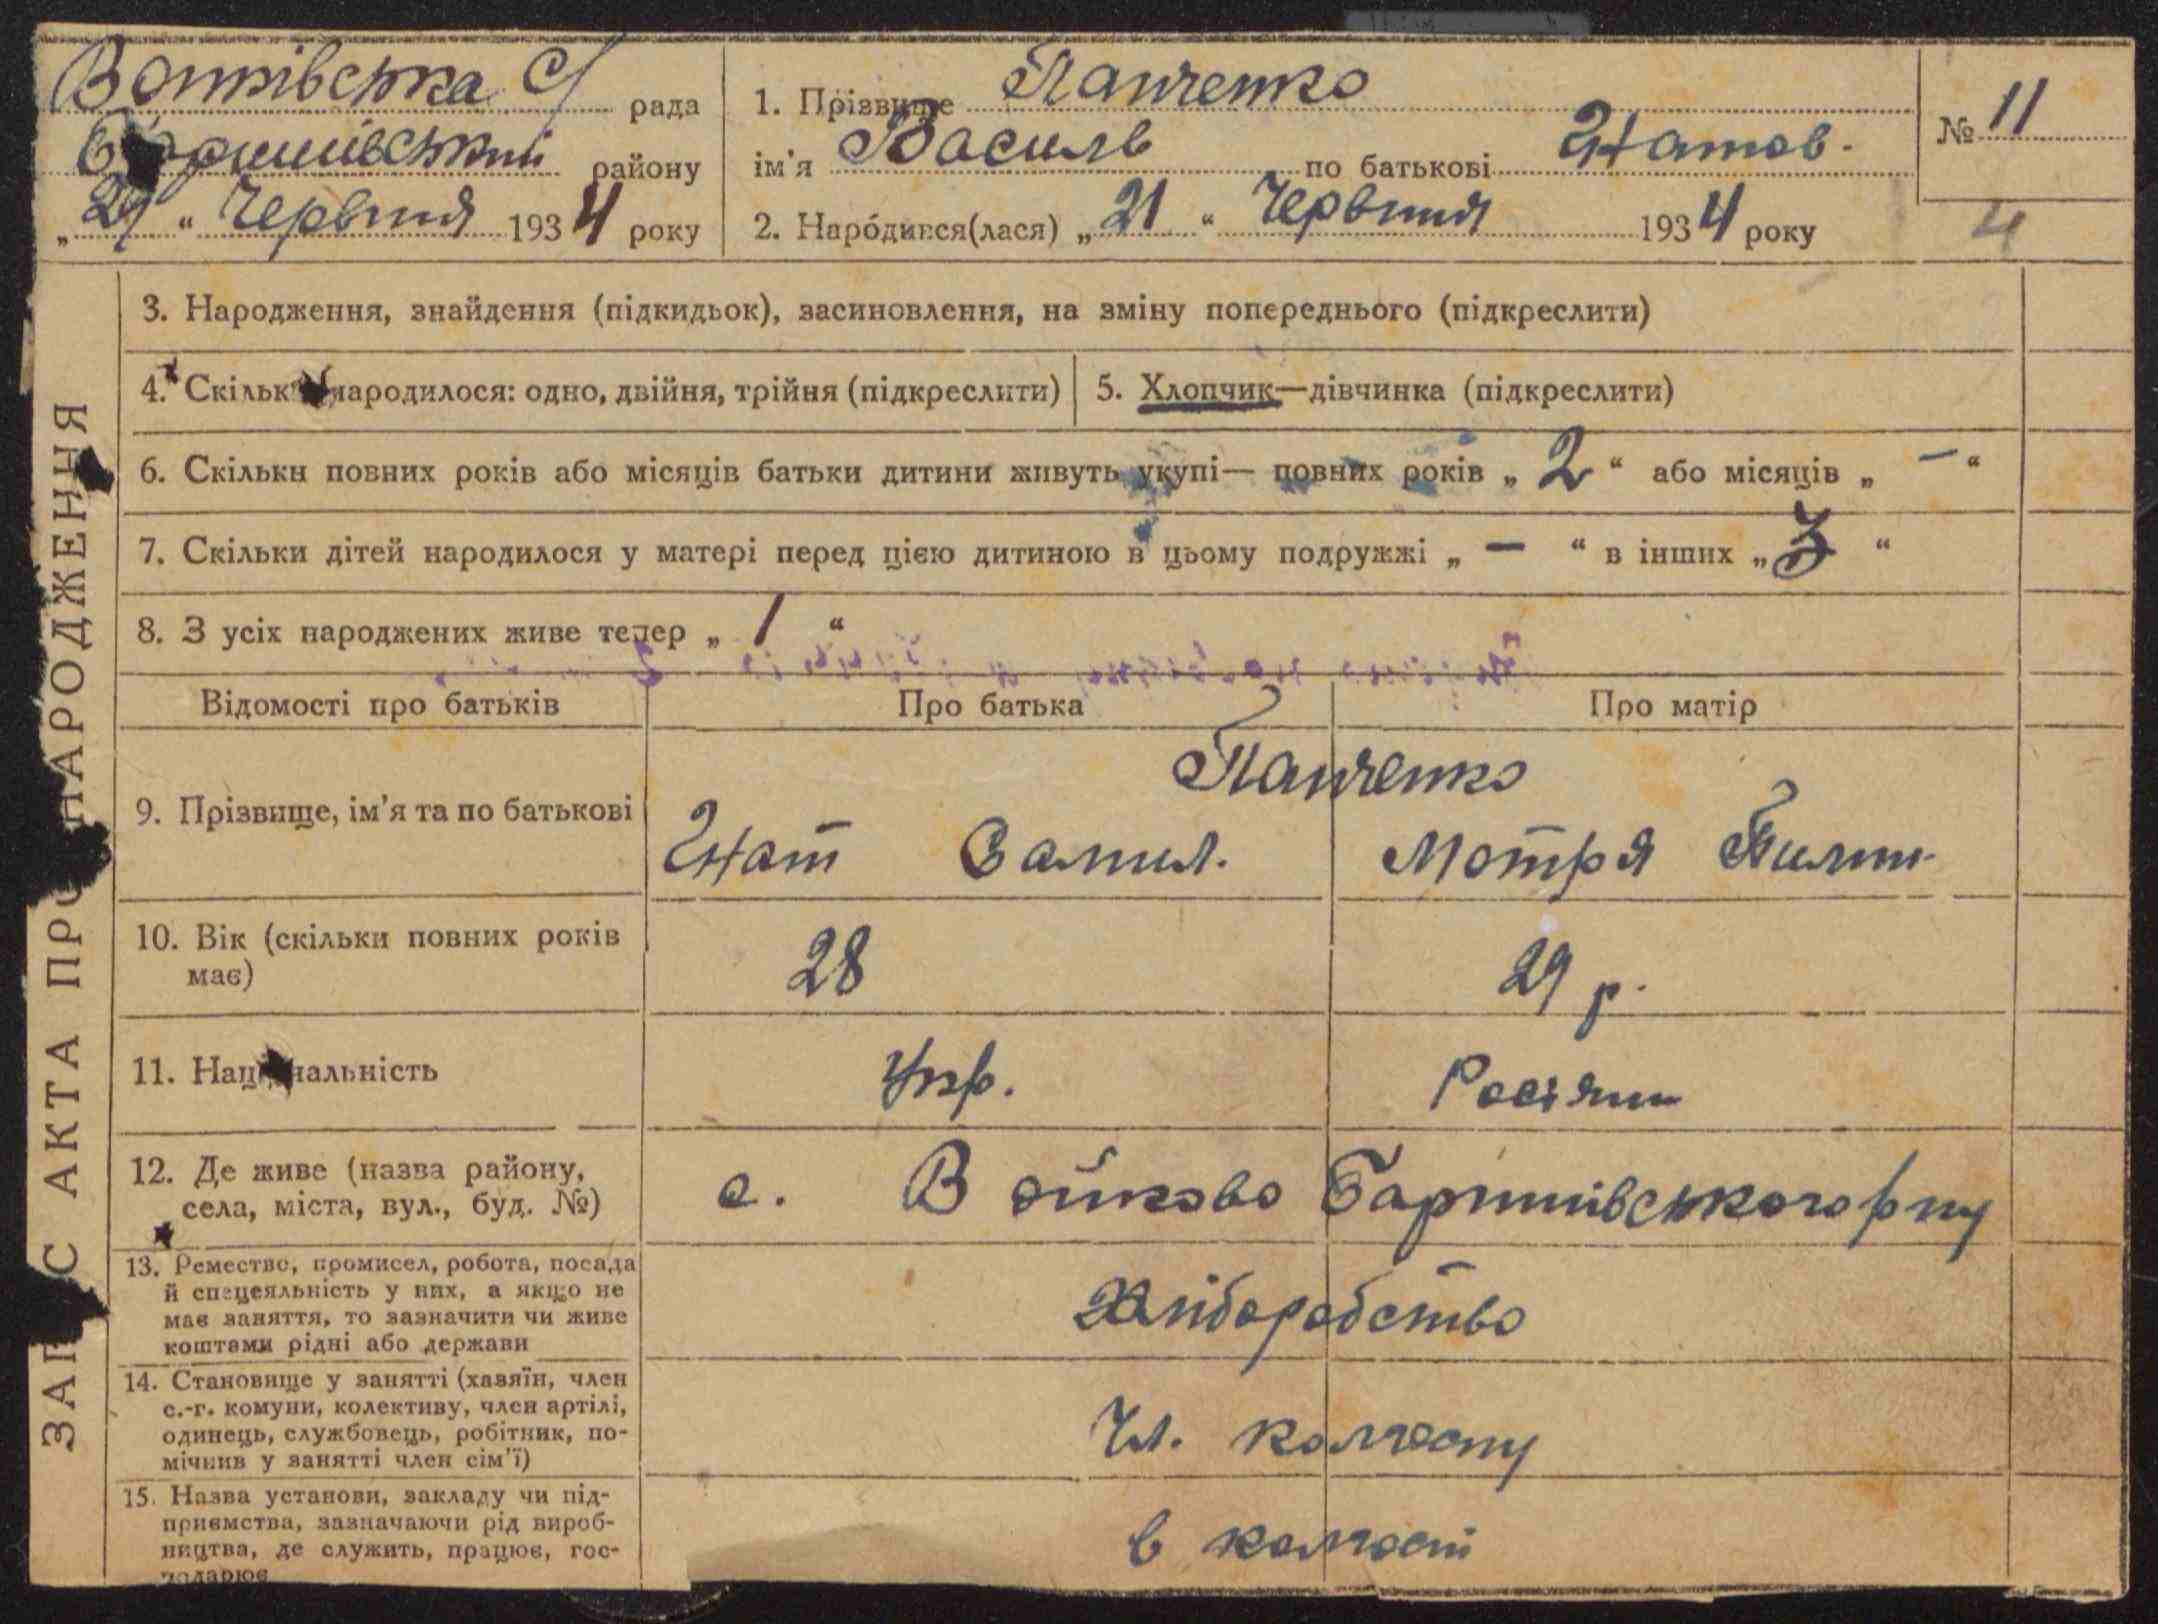 рада
району
„29“ Червня 1934 року
1. Прізвище Панченко
ім'я Василь по батькові Гнатов.
2. Народився(лася) „21“ Червня 1934 року
№ 11
4
ЗАПИС АКТА ПРО НАРОДЖЕННЯ
3. Народження, знайдення (підкидьок), засиновлення, на зміну попереднього (підкреслити)
4. Скільки народилося: одно, двійня, трійня (підкреслити)
5. Хлопчик—дівчинка (підкреслити)
6. Скільки повних років або місяців батьки дитини живуть укупі— повних років „2“ або місяців „—“
7. Скільки дітей народилося у матері перед цією дитиною в цьому подружжі „—“ в інших „3“
8. З усіх народжених живе тепер „1“
Відомості про батьків Про батька Про матір
Панченко
9. Прізвище, ім'я та по батькові Гнат Самил. Мотря Пилип.
10. Вік (скільки повних років 28 29 р.
має)
11. Національність Укр. Росіянк
12. Де живе (назва району,
села, міста, вул., буд. №) с. Войково Баришівського р-ну
13. Ремество, промисел, робота, посада
й спецеяльність у них, а якщо не
має заняття, то зазначити чи живе
коштами рідні або держави
Хліборобство
14. Становище у занятті (хазяїн, член
с.-г. комуни, колективу, член артілі,
одинець, службовець, робітник, по-
мічнив у занятті член сім'ї)
Чл. колгоспу
15. Назва установи, закладу чи під-
приємства, зазначаючи рід вироб-
ництва, де служить, працює, гос-
подарює
в колгоспі